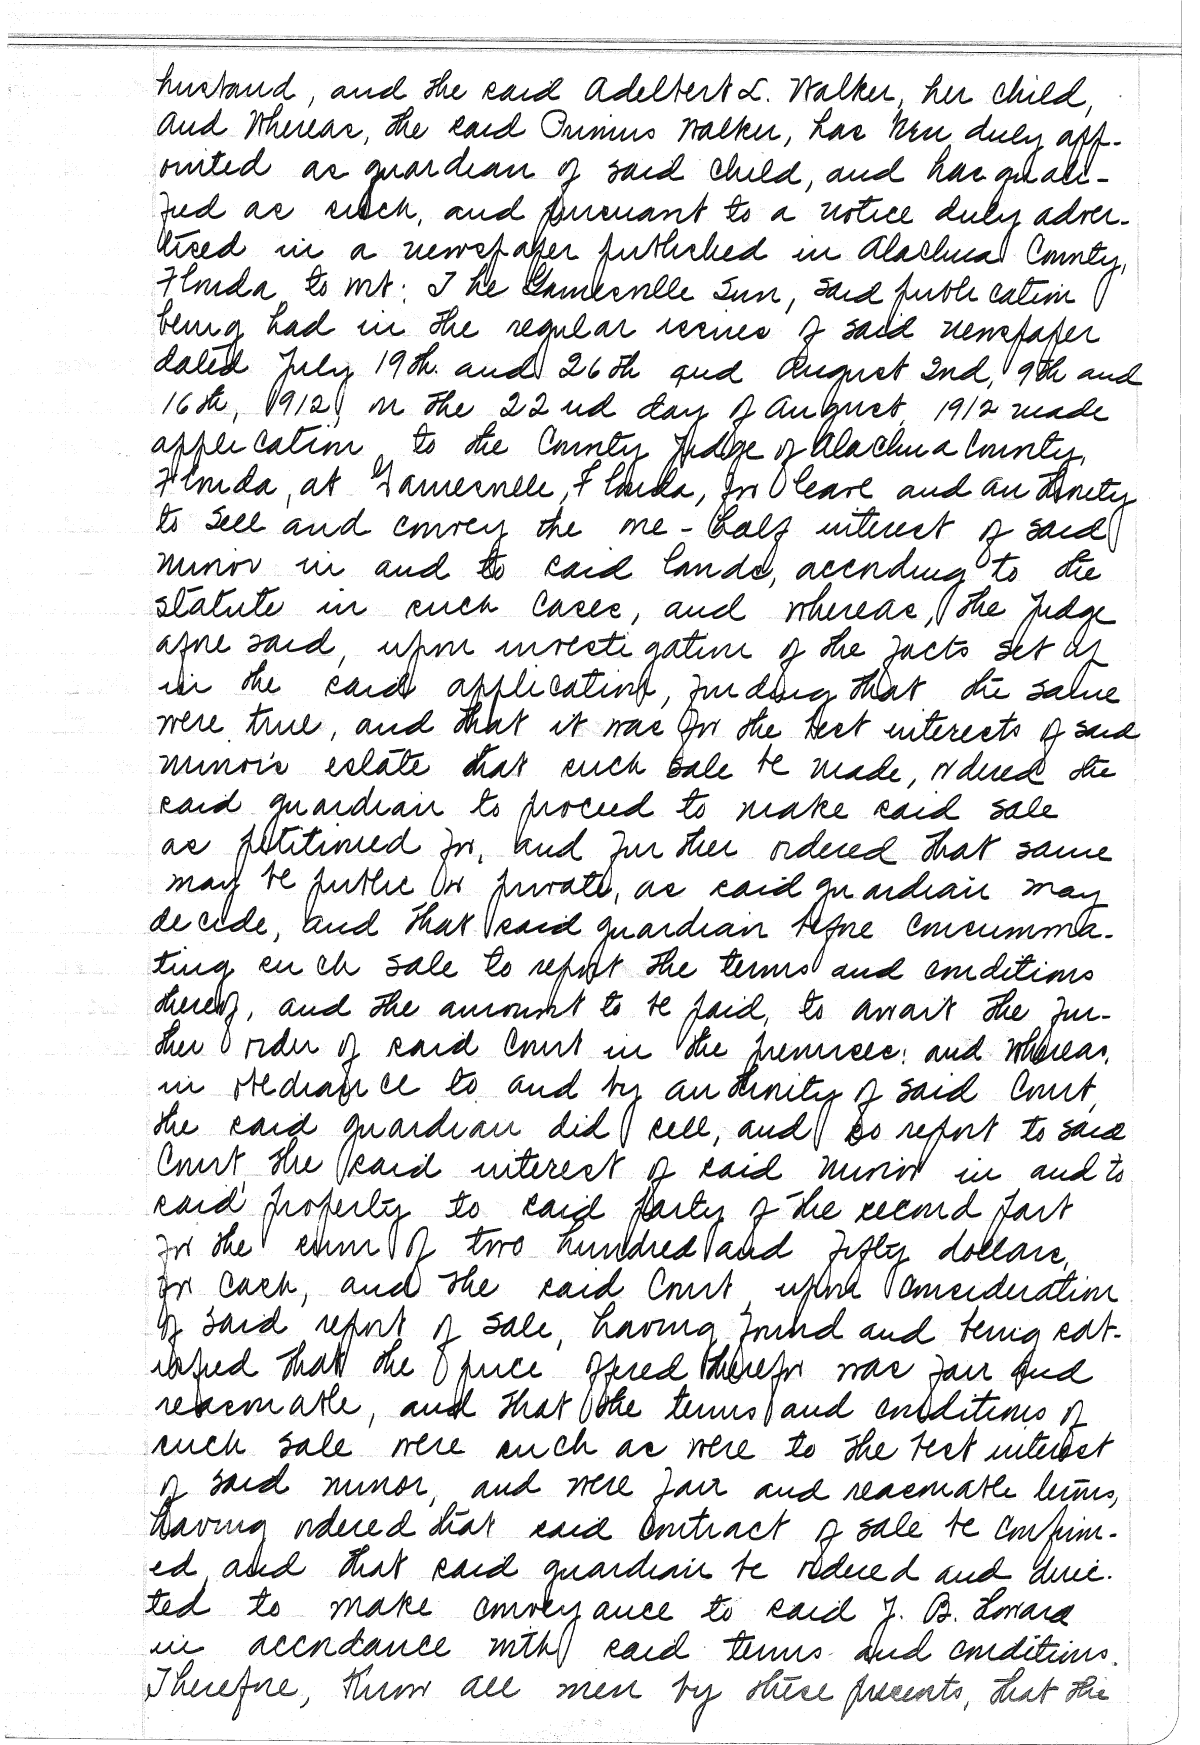 husband, and the said Adelbert L. Walker, her child,
and Whereas, the said Primus Walker, has been duly app-
ointed as guardian of said child, and has quali-
fied as such, and pursuant to a notice duly adver-
tised in a newspaper published in Alachua County,
Florida, to wit: The Gainesville Sun, said publication
being had in the regular issues of said newspaper
dated July 19th. and 26th and August 2nd, 9th and
16th, 1912, on the 22nd day of August, 1912 made
application to the County Judge of Alachua County,
Florida, at Gainesville, Florida, for leave and authority
to sell and convey the one-half interest of said
minor in and to said lands, according to the
statute in such cases, and whereas, the Judge
aforesaid, upon investigation of the facts set up
in the said application, finding that the same
were true, and that it was for the best interests of said
minor's estate that such sale be made, ordered the
said guardian to proceed to make said sale
as petitioned for, and further ordered that same
may be public or private, as said guardian may
decide, and that said guardian before consumma-
ting such sale to report the terms and conditions
thereof, and the amount to be paid, to await the fur-
ther order of said Court in the premises; and Whereas,
in obediance to and by authority of said Court,
the said guardian did sell, and so report to said
Court, the said interest of said minor in and to
said property to said party of the second part
for the sum of two hundred and fifty dollars,
for cash, and the said Court, upon consideration
of said report of sale, having found and being sat-
isfied that the price offered therefor was fair and
reasonable, and that the terms and conditions of
such sale were such as were to the best interest
of said minor, and were fair and reasonable terms,
having ordered that said contract of sale be confirm-
ed, and that said guardian be ordered and direc-
ted to make conveyance to said J. B.
in accordance with said terms and conditions.
Therefore, Know all men by these presents, that the